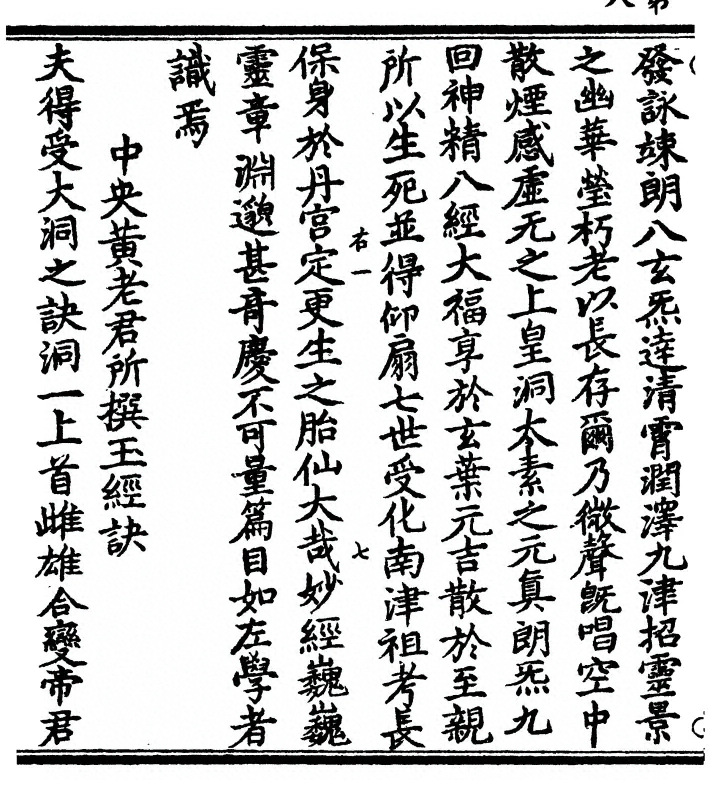 發詠竦朗八玄炁達清霄潤澤九津招靈景
之幽華瑩朽老以長存爾乃微聲旣唱空中
散煙感虛无之上皇洞太素之元眞朗炁九
回神精八經大福享於玄葉元吉散於至親
所以生死並得仰扇七世受化南津祖考長
右一
七
保身於丹宮定更生之胎仙大哉妙經巍巍
靈章淵邈甚奇慶不可量篇目如左學者
識焉
中央黃老君所撰玉經訣
夫得受大洞之訣洞一上首雌雄合變帝君